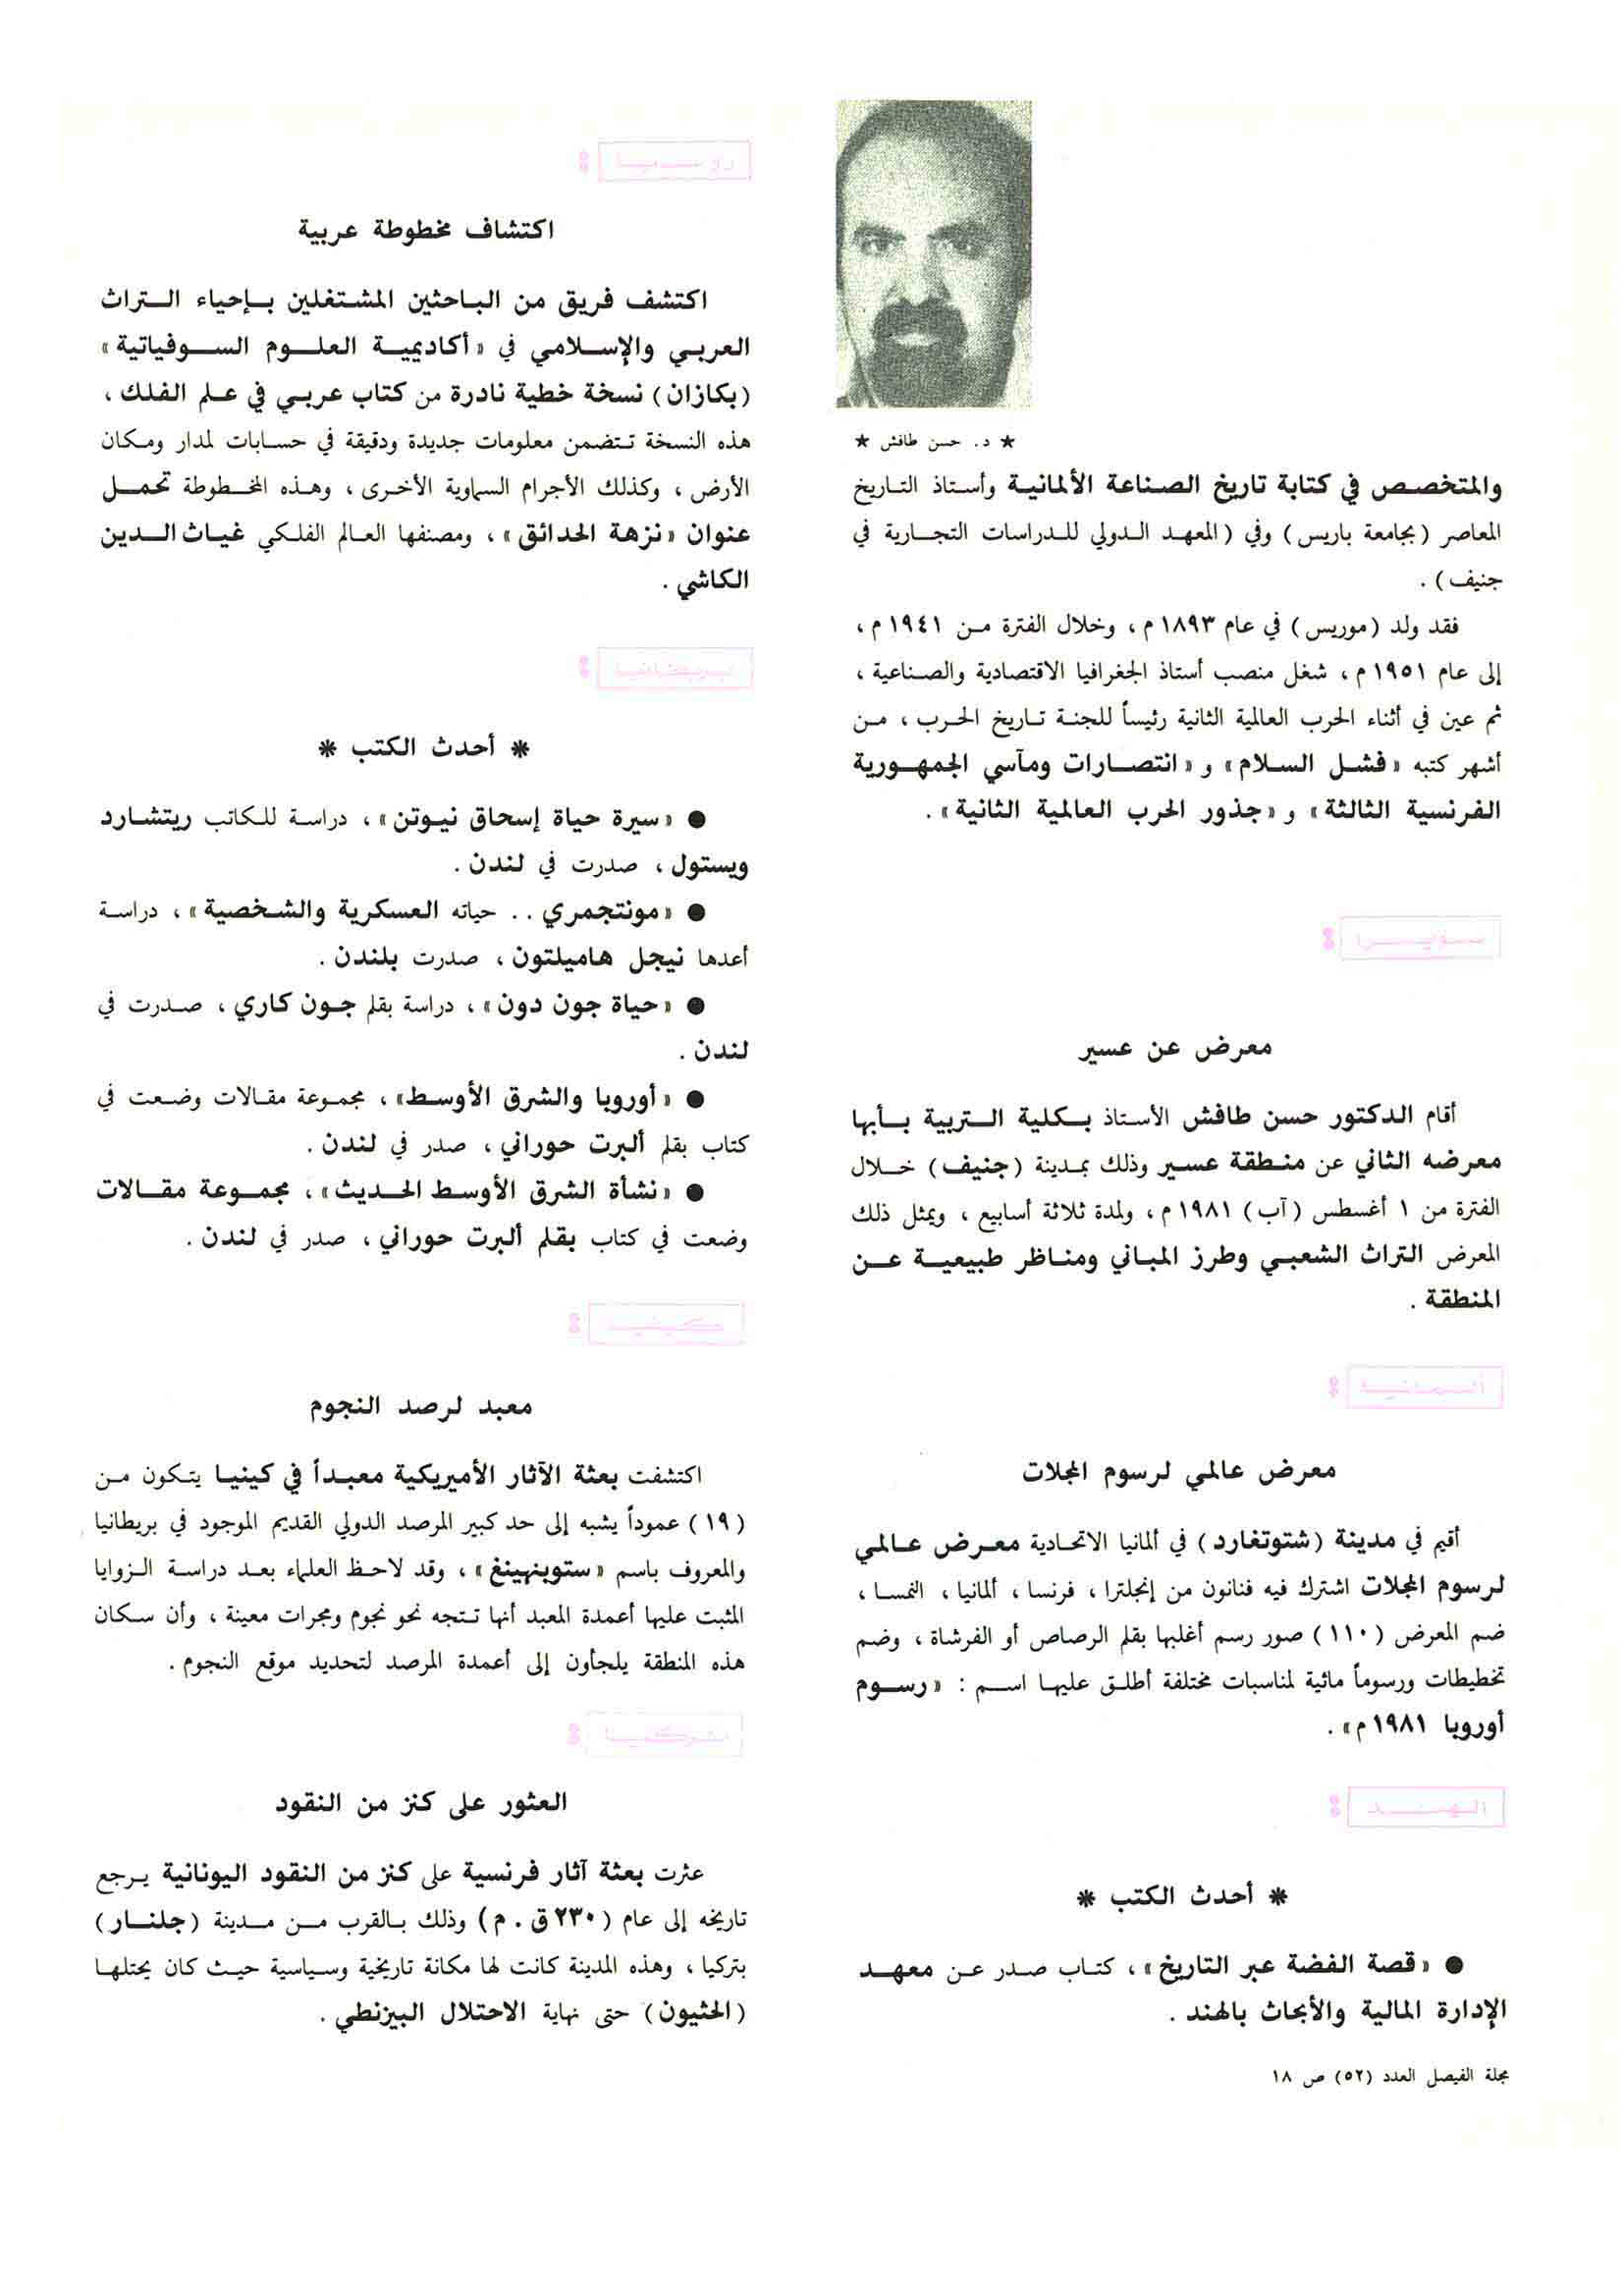 ★ د. حسن طافش ★
والمتخصص في كتابة تاريخ الصناعة الألمانية وأستاذ التاريخ
المعاصر (بجامعة باريس) وفي (المعهد الدولي للدراسات التجارية في
جنيف) .
فقد ولد (موريس) في عام ١٨٩٣ م، وخلال الفترة من ١٩٤١ م،
إلى عام ١٩٥١ م، شغل منصب أستاذ الجغرافيا الاقتصادية والصناعية ،
ثم عين في أثناء الحرب العالمية الثانية رئيساً للجنة تاريخ الحرب ، من
أشهر كتبه «فشل السلام» و «انتصارات ومآسي الجمهورية
الفرنسية الثالثة» و «جذور الحرب العالمية الثانية» .
سويسرا :
معرض عن عسير
أقام الدكتور حسن طافش الأستاذ بكلية التربية بأبها
معرضه الثاني عن منطقة عسير وذلك بمدينة (جنيف) خلال
الفترة من ١ أغسطس (آب) ١٩٨١ م، ولمدة ثلاثة أسابيع ، ويمثل ذلك
المعرض التراث الشعبي وطرز المباني ومناظر طبيعية عن
المنطقة .
ألمانيا :
معرض عالمي لرسوم المجلات
أقيم في مدينة (شتوتغارد) في ألمانيا الاتحادية معرض عالمي
لرسوم المجلات اشترك فيه فنانون من إنجلترا ، فرنسا ، ألمانيا ، النمسا ،
ضم المعرض (١١٠) صور رسم أغلبها بقلم الرصاص أو الفرشاة ، وضم
تخطيطات ورسوماً مائية لمناسبات مختلفة أطلق عليها اسم : «رسوم
أوروبا ١٩٨١ م» .
الهند :
* أحدث الكتب *
● «قصة الفضة عبر التاريخ» ، كتاب صدر عن معهد
الإدارة المالية والأبحاث بالهند .
روسيا :
اكتشاف مخطوطة عربية
اكتشف فريق من الباحثين المشتغلين بإحياء التراث
العربي والإسلامي في «أكاديمية العلوم السوفياتية»
(بكازان) نسخة خطية نادرة من كتاب عربي في علم الفلك ،
هذه النسخة تتضمن معلومات جديدة ودقيقة في حسابات لمدار ومكان
الأرض ، وكذلك الأجرام السماوية الأخرى ، وهذه المخطوطة تحمل
عنوان «نزهة الحدائق» ، ومصنفها العالم الفلكي غياث الدين
الكاشي .
بريطانيا :
* أحدث الكتب *
● «سيرة حياة إسحاق نيوتن» ، دراسة للكاتب ريتشارد
ويستول ، صدرت في لندن .
● «مونتجمري .. حياته العسكرية والشخصية» ، دراسة
أعدها نيجل هاميلتون ، صدرت بلندن .
● «حياة جون دون» ، دراسة بقلم جون كاري ، صدرت في
لندن .
● «أوروبا والشرق الأوسط» ، مجموعة مقالات وضعت في
كتاب بقلم ألبرت حوراني ، صدر في لندن .
● «نشأة الشرق الأوسط الحديث» ، مجموعة مقالات
وضعت في كتاب بقلم ألبرت حوراني ، صدر في لندن .
كينيا :
معبد لرصد النجوم
اكتشفت بعثة الآثار الأميريكية معبداً في كينيا يتكون من
(١٩) عموداً يشبه إلى حد كبير المرصد الدولي القديم الموجود في بريطانيا
والمعروف باسم «ستوبنهينغ» ، وقد لاحظ العلماء بعد دراسة الزوايا
المثبت عليها أعمدة المعبد أنها تتجه نحو نجوم ومجرات معينة ، وأن سكان
هذه المنطقة يلجأون إلى أعمدة المرصد لتحديد موقع النجوم .
تركيا :
العثور على كنز من النقود
عثرت بعثة آثار فرنسية على كنز من النقود اليونانية يرجع
تاريخه إلى عام (٢٣٠ ق . م) وذلك بالقرب من مدينة (جلنار)
بتركيا ، وهذه المدينة كانت لها مكانة تاريخية وسياسية حيث كان يحتلها
(الحثيون) حتى نهاية الاحتلال البيزنطي .
مجلة الفيصل العدد (٥٢) ص ١٨